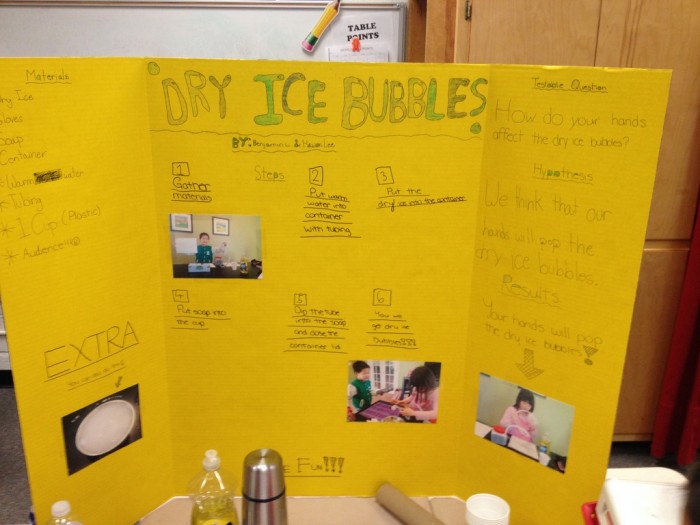 TABLE
POINTS
Materials
Dry Ice
Gloves
Soap
Container
* Warm water
* Tubing
* 1 Cup (Plastic)
* Audience!!!
EXTRA
DRY ICE BUBBLES
BY: Benjamin & Haven Lee
Steps
1
Gather
materials
2
Put warm
water into
container
with tubing
3
Put the
dry ice into the container
4
Put soap into
the cup
5
Dip the tube
into the soap
and close the
container lid
6
You will
get dry ice
bubbles!!!!
Fun!!!
Testable Question
How do your hands
affect the dry ice bubbles?
Hypothesis
We think that our
hands will pop the
dry ice bubbles.
Results
Your hands will pop
the dry ice bubbles!